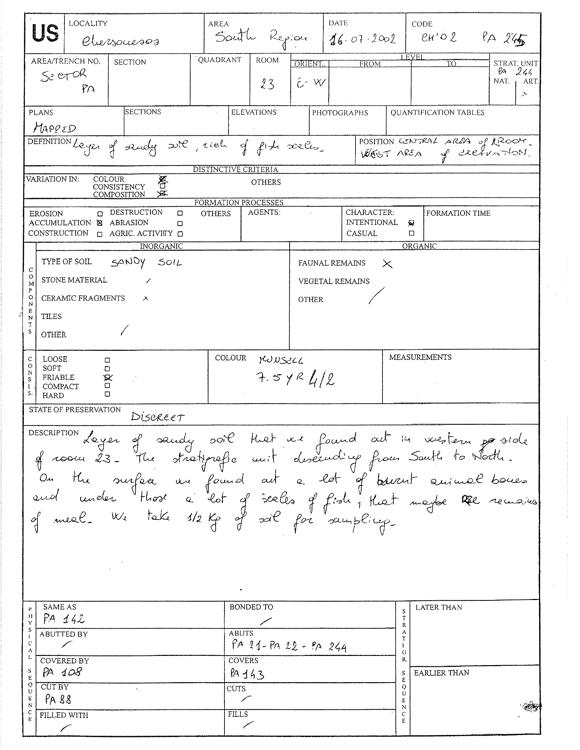 US
LOCALITY
Chersonesos
AREA
South Region
DATE
16-07-2002
CODE
CH'02 PA 245
AREA/TRENCH NO.
SECTOR
PA
SECTION
QUADRANT
ROOM
23
LEVEL
ORIENT. FROM TO
E-W
STRAT. UNIT
PA 244
NAT. ART.
x
PLANS
MAPPED
SECTIONS
ELEVATIONS
PHOTOGRAPHS
QUANTIFICATION TABLES
DEFINITION Layer of sandy soil, rich of fish scales.
POSITION CENTRAL AREA OF ROOM.
WEST AREA of excavation.
DISTINCTIVE CRITERIA
VARIATION IN: COLOUR
CONSISTENCY
COMPOSITION
OTHERS
FORMATION PROCESSES
EROSION DESTRUCTION OTHERS
ACCUMULATION ABRASION
CONSTRUCTION AGRIC. ACTIVITY
AGENTS:
CHARACTER:
INTENTIONAL
CASUAL
FORMATION TIME
COMPONENTS
INORGANIC
TYPE OF SOIL SANDY SOIL
STONE MATERIAL /
CERAMIC FRAGMENTS x
TILES
OTHER /
ORGANIC
FAUNAL REMAINS X
VEGETAL REMAINS
OTHER /
CONSIS.
LOOSE
SOFT
FRIABLE
COMPACT
HARD
COLOUR MUNSELL
7.5 YR 4/2
MEASUREMENTS
STATE OF PRESERVATION
DISCREET
DESCRIPTION Layer of sandy soil that we found out in western side
of room 23. The stratigrafic unit discending from South to North.
On the surface we found out a lot of burent animal bones
and under those a lot of scales of fish, that maybe are remains
of meal. We take 1/2 Kg of soil for sampling.
PHYSICAL SEQUENCE
SAME AS
PA 142
BONDED TO
/
ABUTTED BY
/
ABUTS
PA 21-PA 22-PA 244
COVERED BY
PA 108
COVERS
PA 143
CUT BY
PA 88
CUTS
/
FILLED WITH
/
FILLS
/
STRATIGR. SEQUENCE
LATER THAN
EARLIER THAN